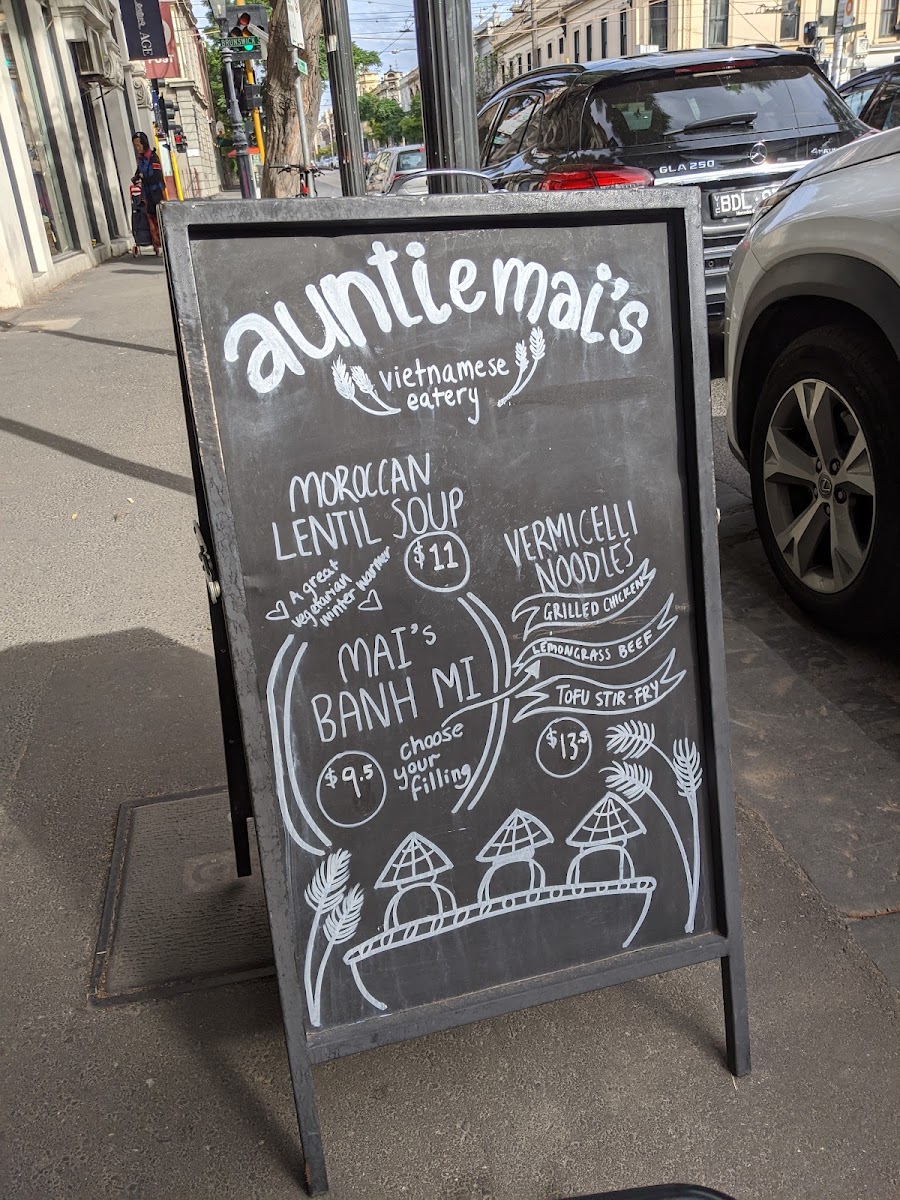 The AGE
POST
BRUNSWICK
GLA 250
4MATIC
BDL
auntie mai's
vietnamese
eatery
MOROCCAN
LENTIL SOUP
$11
A great
vegetarian
winter warmer
MAI's
BANH MI
$9.5
choose
your
filling
VERMICELLI
NOODLES
GRILLED CHICKEN
LEMONGRASS BEEF
TOFU STIR-FRY
$13.5